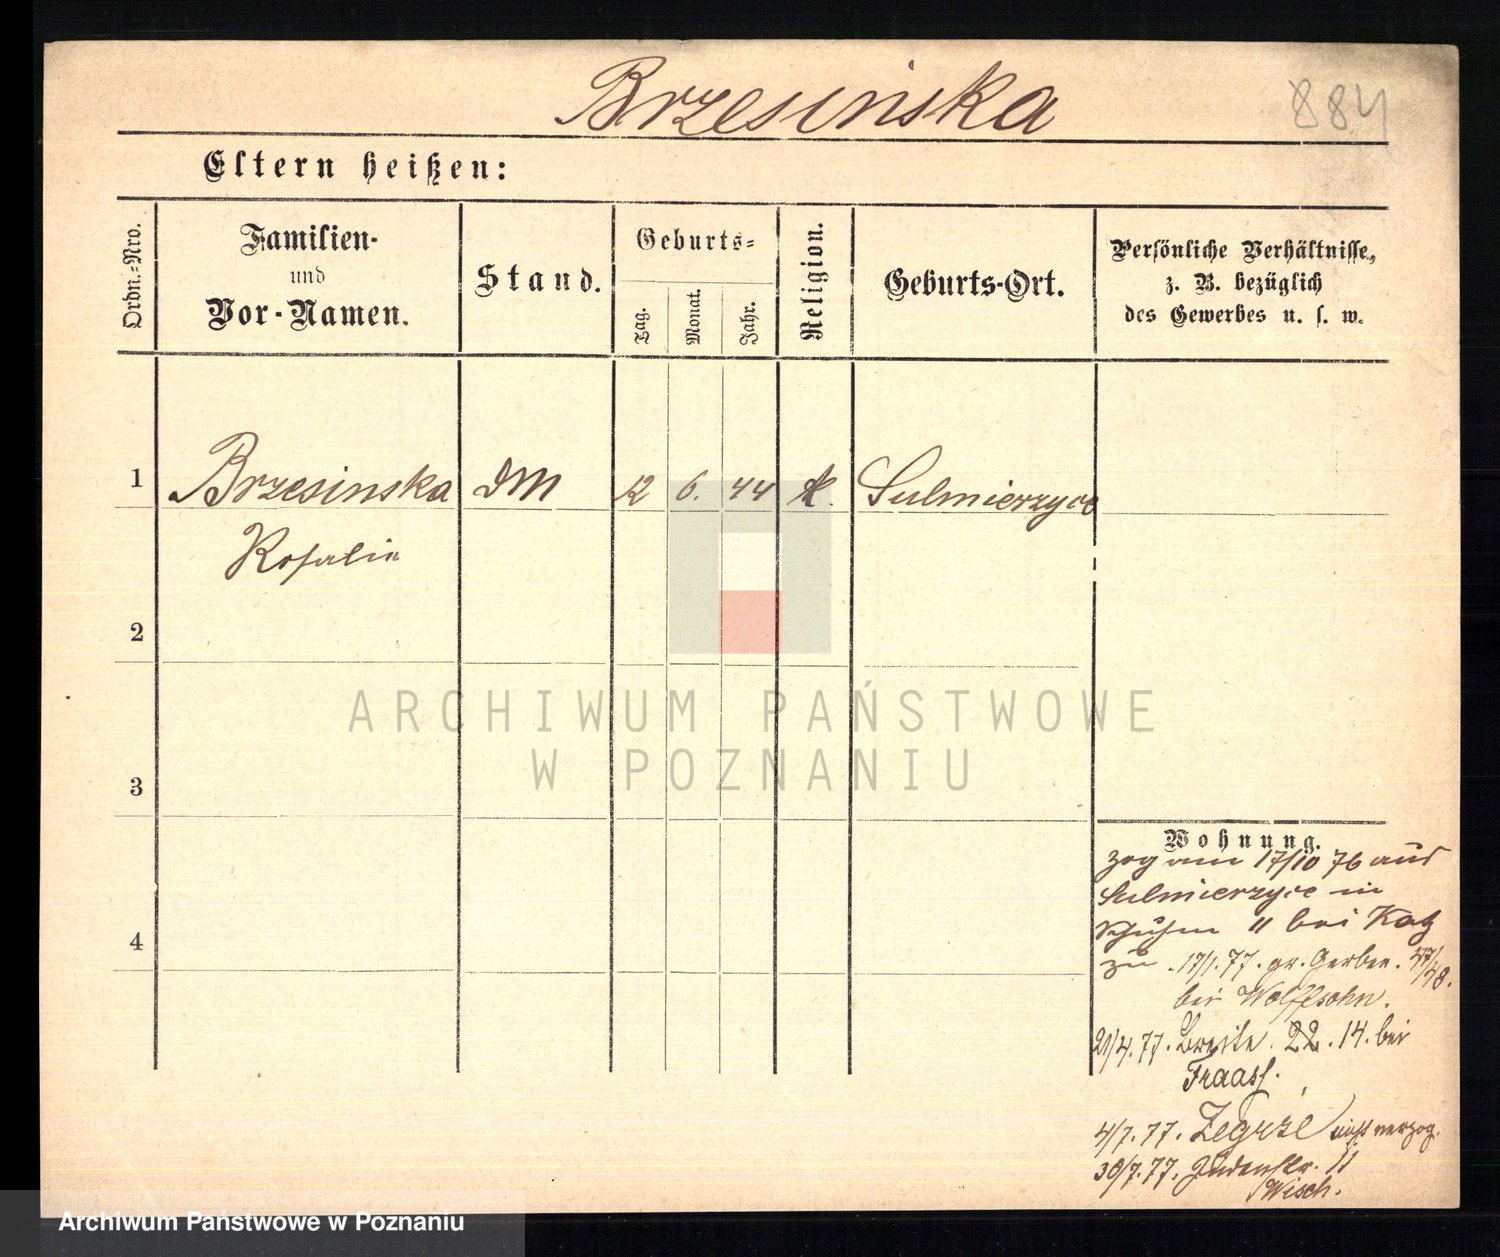 Brzesinska
884
Eltern heißen:
Ordn.-Nro.
Familien-
und
Vor-Namen.
Stand.
Geburts-
Tag.
Monat.
Jahr.
Religion.
Geburts-Ort.
Persönliche Verhältnisse,
z. B. bezüglich
des Gewerbes u. s. w.
1 Brzesinska DM 12 6. 44 k. Sulmierzyce
Rosalie
2
3
4
Wohnung.
zog am 17/10 76 aus
Sulmierzyce in
11 bei Katz
zu 17/1. 77. gr. Gerber. 47/48.
bei Wolffsohn.
21/4. 77. Breite. 22. 14. bei
Fraass.
4/7. 77. Zegrze verzog.
30/7. 77. Judenstr. 11
Wisch.
ARCHIWUM PAŃSTWOWE
W POZNANIU
Archiwum Państwowe w Poznaniu